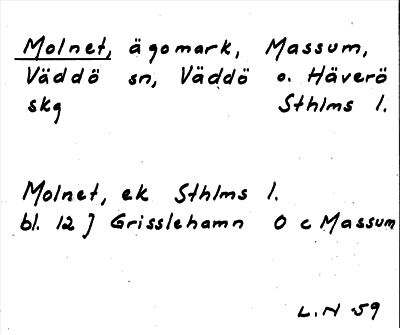 Molnet, ägomark, Massum,
Väddö sn, Väddö o. Häverö
skg Sthlms l.
Molnet, ek Sthlms l.
bl. 12 J Grisslehamn O c Massum
L.N 59